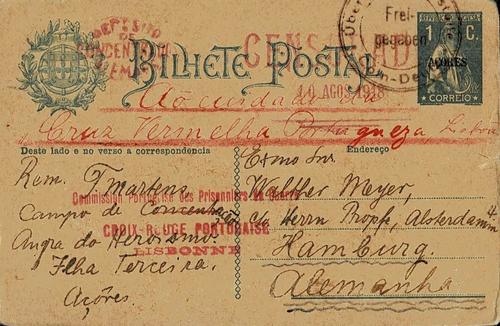 DEPOSITO
DE
CENSURADO
Frei-
gegeben
REPUBLICA PORTUGUESA
1 C.
AÇORES
CORREIO
BILHETE POSTAL
10 AGOS 1918
Ao cuidado da
Cruz Vermelha Portugueza, Lisboa
Deste lado e no verso a correspondencia
Endereço
Rem. T. Martens
Campo de Concentração
Angra do Heroismo.
Ilha Terceira.
Açôres
Commission Portugaise des Prisonniers de Guerre
CROIX-ROUGE PORTUGAISE
LISBONNE
Exmo Snr.
Walther Meyer,
c/o Herrn Propfe, Alsterdamm 4.
Hamburg
Alemanha